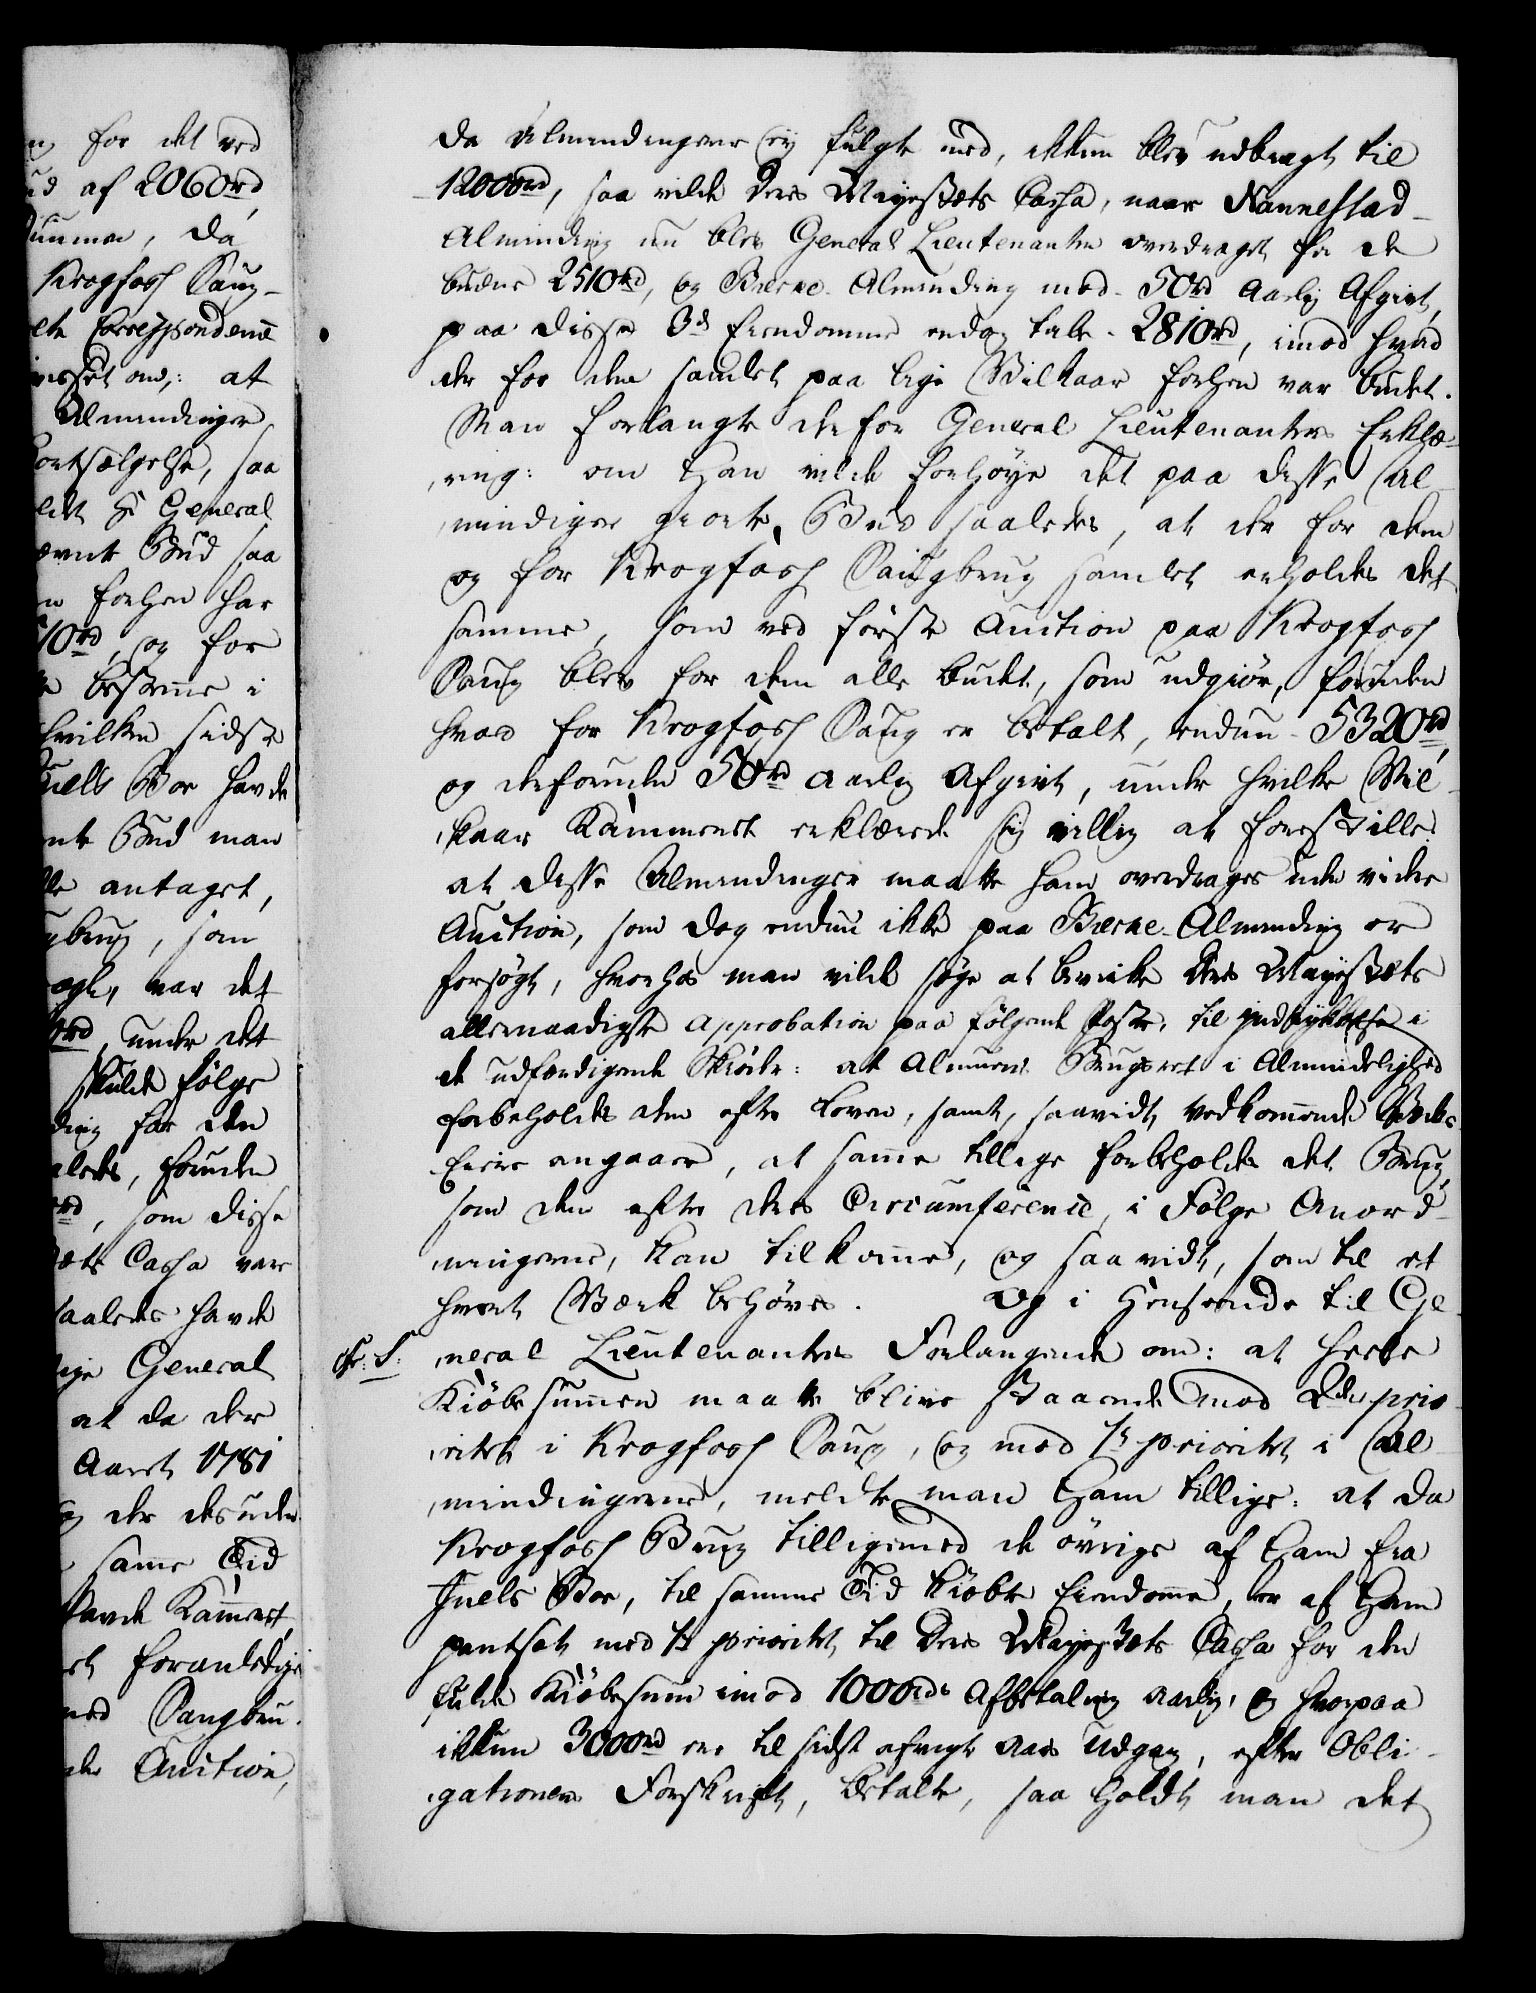 for det ved
af 2060rd
Summen, da
Krogfoss Saug-
Correspondence
at
Almindinger
Bortsælgelse, saa
General
Bud saa
forhen har
10rd, og for
bestemme i
hvilken sidste
Juells Boe havde
Bud man
antaget,
brug, som
var det
rd, under det
skulde følge
for den
foruden
rd, som disse
Cassa vare
saaledes havde
General
at da der
Aaret 1781
der desuden
samme Tid
havde Kammeret
foranledige
med Saugbru-
Auction,
da Almindingerne ey fulgte med, ikkun blev udbragt til
12000rd, saa vilde Deres Majestæts Cassa, naar Nannestad-
Alminding nu blev General Lieutenanten overdraget for de
budne 2510rd, og Bierke-Alminding med 50rd aarlig Afgivt,
paa disse 3de Eiendomme endog tabe 2810rd, imod hvad
der for dem samlet paa lige Vilkaar forhen var budet.
Man forlangte derfor General Lieutenantens Erklæ-
ring: om Han vilde forhøye det paa disse Al-
mindiger giorte Bud saaledes, at der for dem
og for Krogfoss Saugbrug samlet erholdes det
samme, som ved første Auction paa Krogfoss
Saug blev for dem alle budet, som udgiør, foruden
hvad for Krogfoss Saug er betalt, endnu 5320rd,
og desforuden 50rd aarlig Afgivt, under hvilke Vil-
kaar Kammeret erklærede sig villig at forestille:
at disse Almindinger maatte ham overdrages uden videre
Auction, som dog endnu ikke paa Bierke-Alminding er
forsøgt, hvorhos man vilde søge at bevirke Deres Majestæts
allernaadigste Approbation paa følgende Poster, til Indrykkelse i
de udfærdigende Skiøder: at Almuens Brugsret i Almindelighed
forbeholdes dem efter Loven, samt, saavidt vedkommende Værks
Eiere angaaer, at samme tillige forbeholdes det Brug,
som dem efter deres Circumference, i Følge Anord-
ningerne, kan tilkomme, og saavidt, som til et
hvert Værk behøves. Og i Henseende til Ge-
neral Lieutenantens Forlangende om: at heele
Kiøbesummen maatte blive staaende mod 2den prio-
ritet i Krogfoss Saug, og med 1ste prioritet i Al-
mindingerne, meldte man Ham tillige: at da
Krogfoss Brug tilligemed de øvrige af Ham fra
Juels Boe, til samme Tid kiøbte Eiendomme, er af Ham
pantsat med 1ste prioritet til Deres Majestæts Cassa for den
fulde Kiøbesum imod 1000rds Afbetaling aarlig, og hvorpaa
ikkun 3000rd ere til sidst afvigte Aars Udgang, efter Obli-
gationens Forskrift, betalte, saa holdt man det